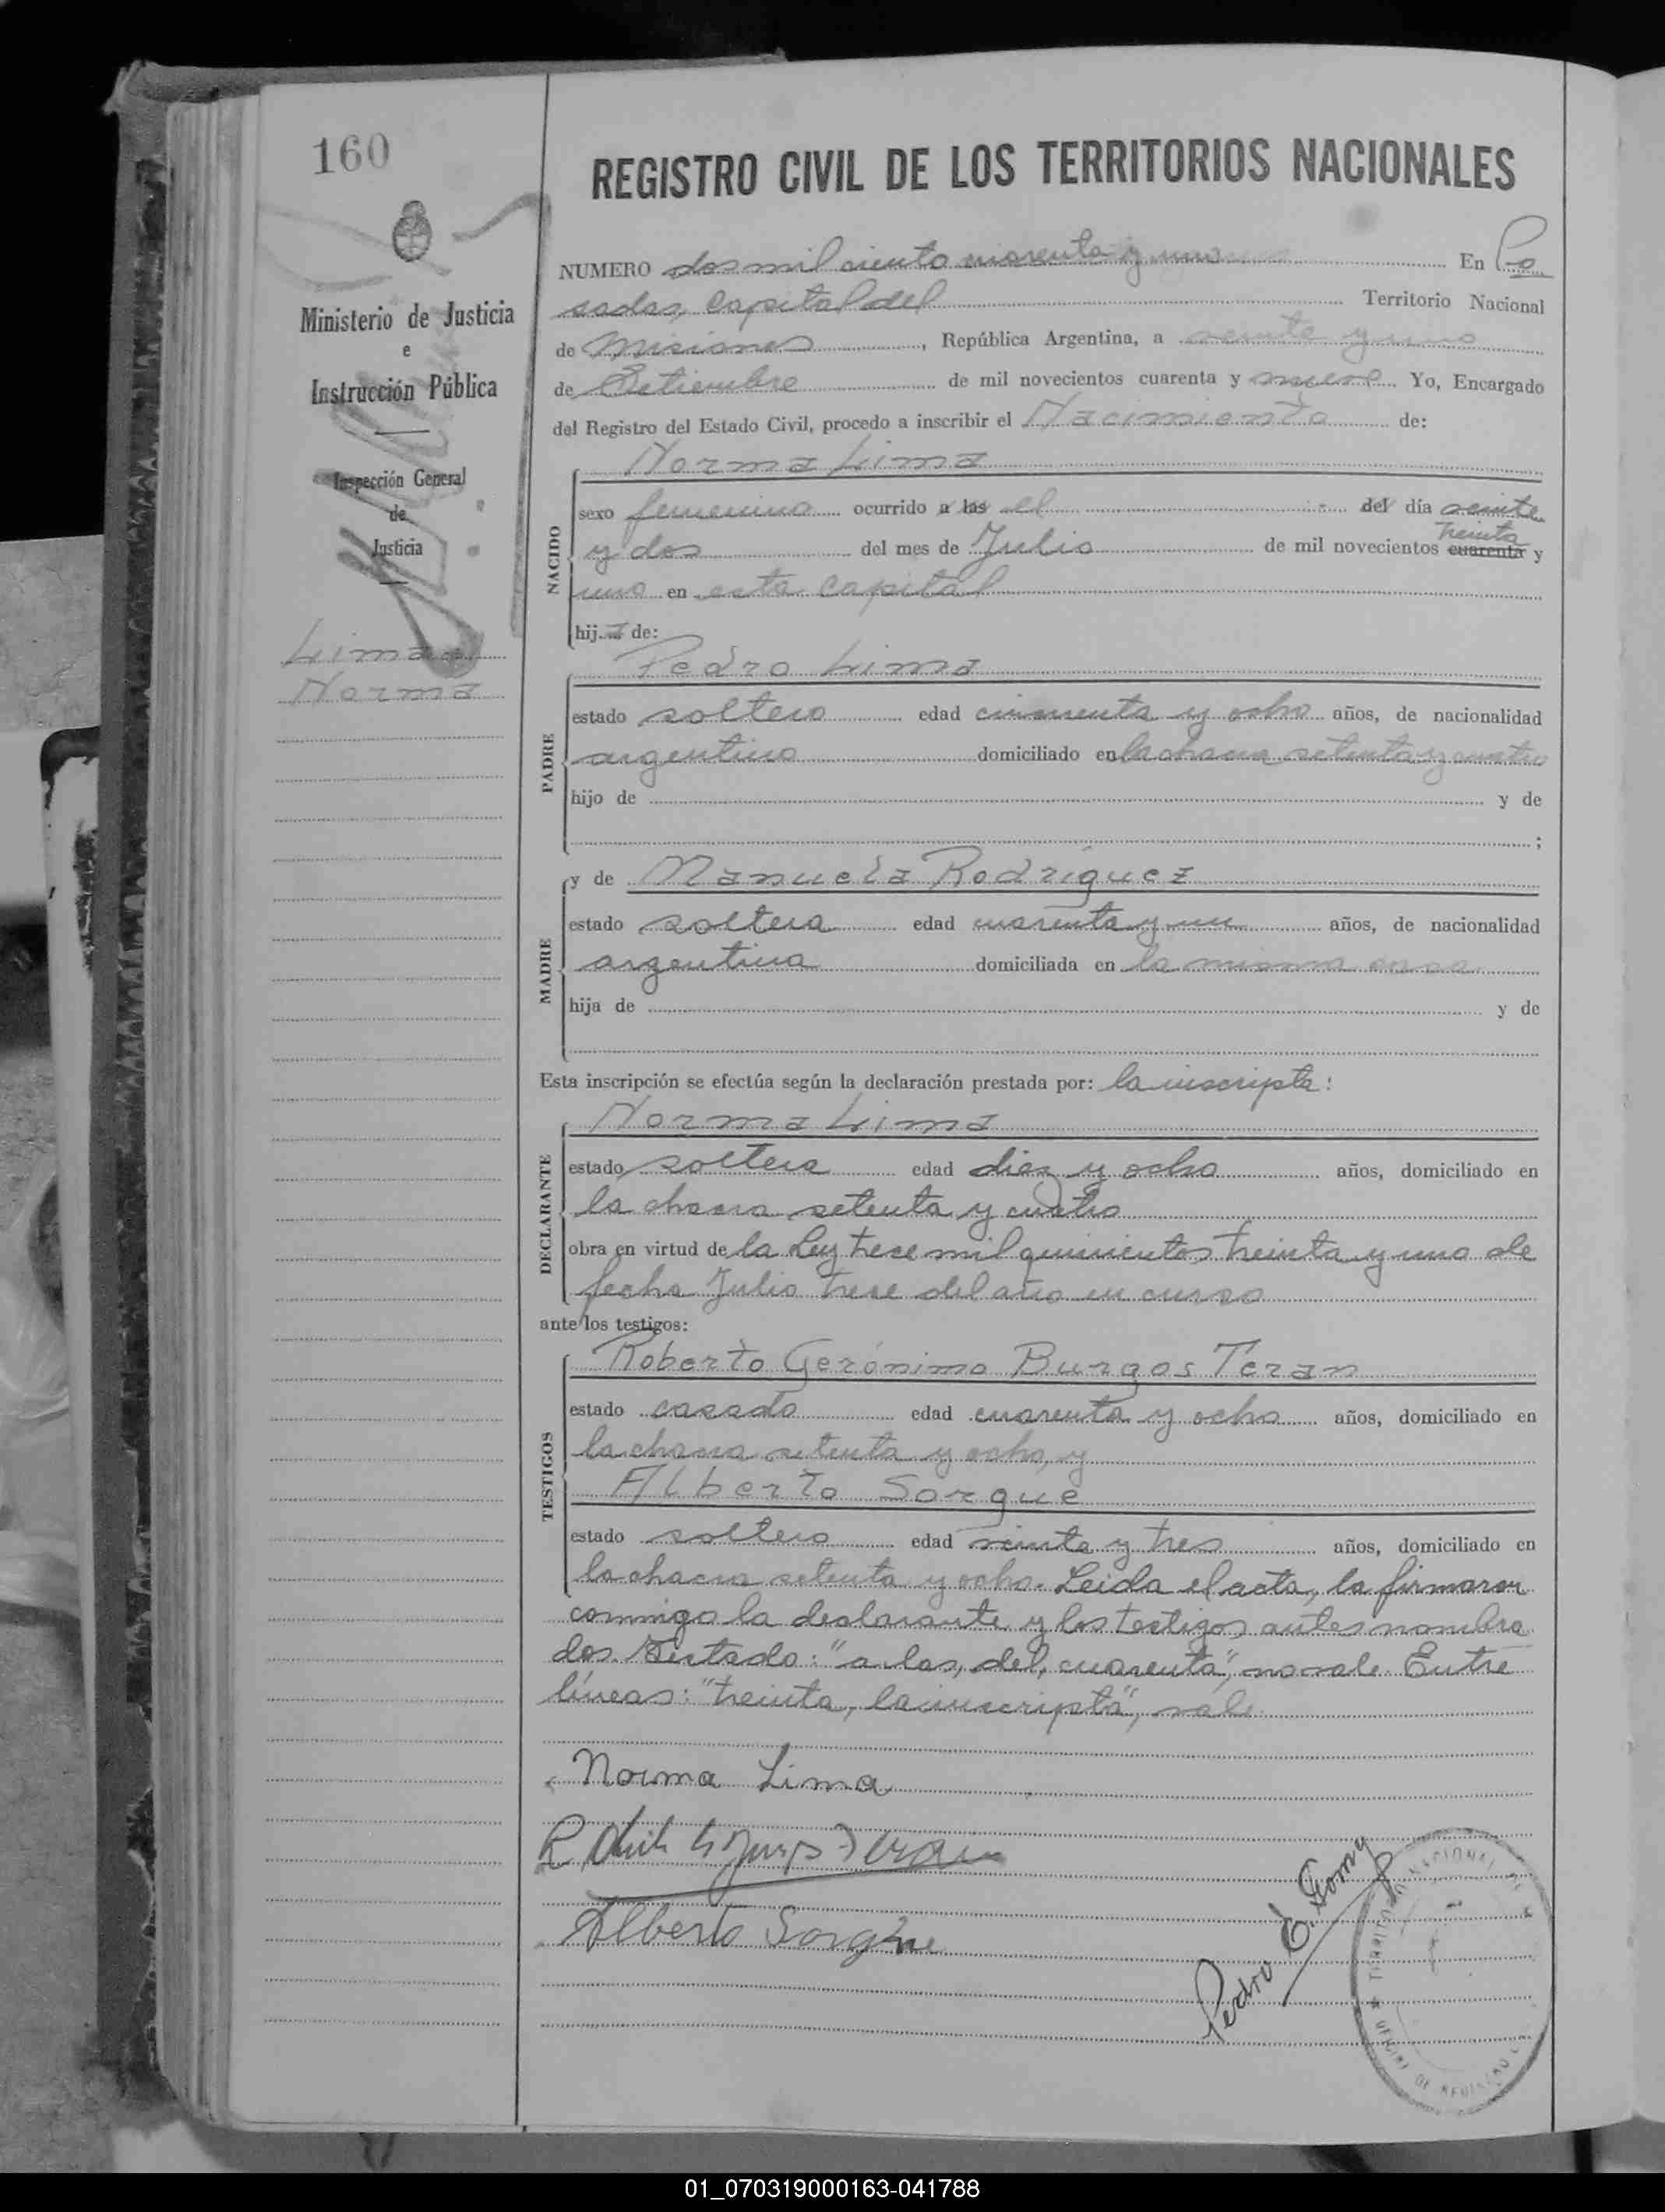 160
REGISTRO CIVIL DE LOS TERRITORIOS NACIONALES
Ministerio de Justicia
e
Instrucción Pública
Inspección General
de
Justicia
Lima
Norma
NUMERO dos mil ciento cuarenta y uno En Po
sadas, Capital del Territorio Nacional
de Misiones, República Argentina, a veinte y uno
de Setiembre de mil novecientos cuarenta y nueve. Yo, Encargado
del Registro del Estado Civil, procedo a inscribir el Nacimiento de:
Norma Lima
NACIDO
sexo femenino ocurrido a las el del día veinte
treinta
y dos del mes de Julio de mil novecientos cuarenta y
uno en esta capital
hija de:
Pedro Lima
PADRE
estado soltero edad cincuenta y ocho años, de nacionalidad
argentino domiciliado en la chacra setenta y cuatro
hijo de y de
;
y de Manuela Rodríguez
MADRE
estado soltera edad cuarenta y un años, de nacionalidad
argentina domiciliada en la misma casa
hija de y de
Esta inscripción se efectúa según la declaración prestada por: la inscripta:
Norma Lima
DECLARANTE
estado soltera edad diez y ocho años, domiciliado en
la chacra setenta y cuatro
obra en virtud de la Ley trece mil quinientos treinta y uno de
fecha Julio trece del año en curso
ante los testigos:
Roberto Gerónimo Burgos Terán
TESTIGOS
estado casado edad cuarenta y ocho años, domiciliado en
la chacra setenta y ocho, y
Alberto Sorgue
estado soltero edad veinte y tres años, domiciliado en
la chacra setenta y ocho. Leida el acta, la firmaron
conmigo la declarante y los testigos antes nombra
dos. Testado: "a las, del, cuarenta", no vale. Entre
líneas: "treinta, la inscripta", vale.
Norma Lima
Alberto Sorgue
Pedro E. Gomy
TERRITORIO NACIONAL DE
OFICINA DE REGISTRO
01_070319000163-041788